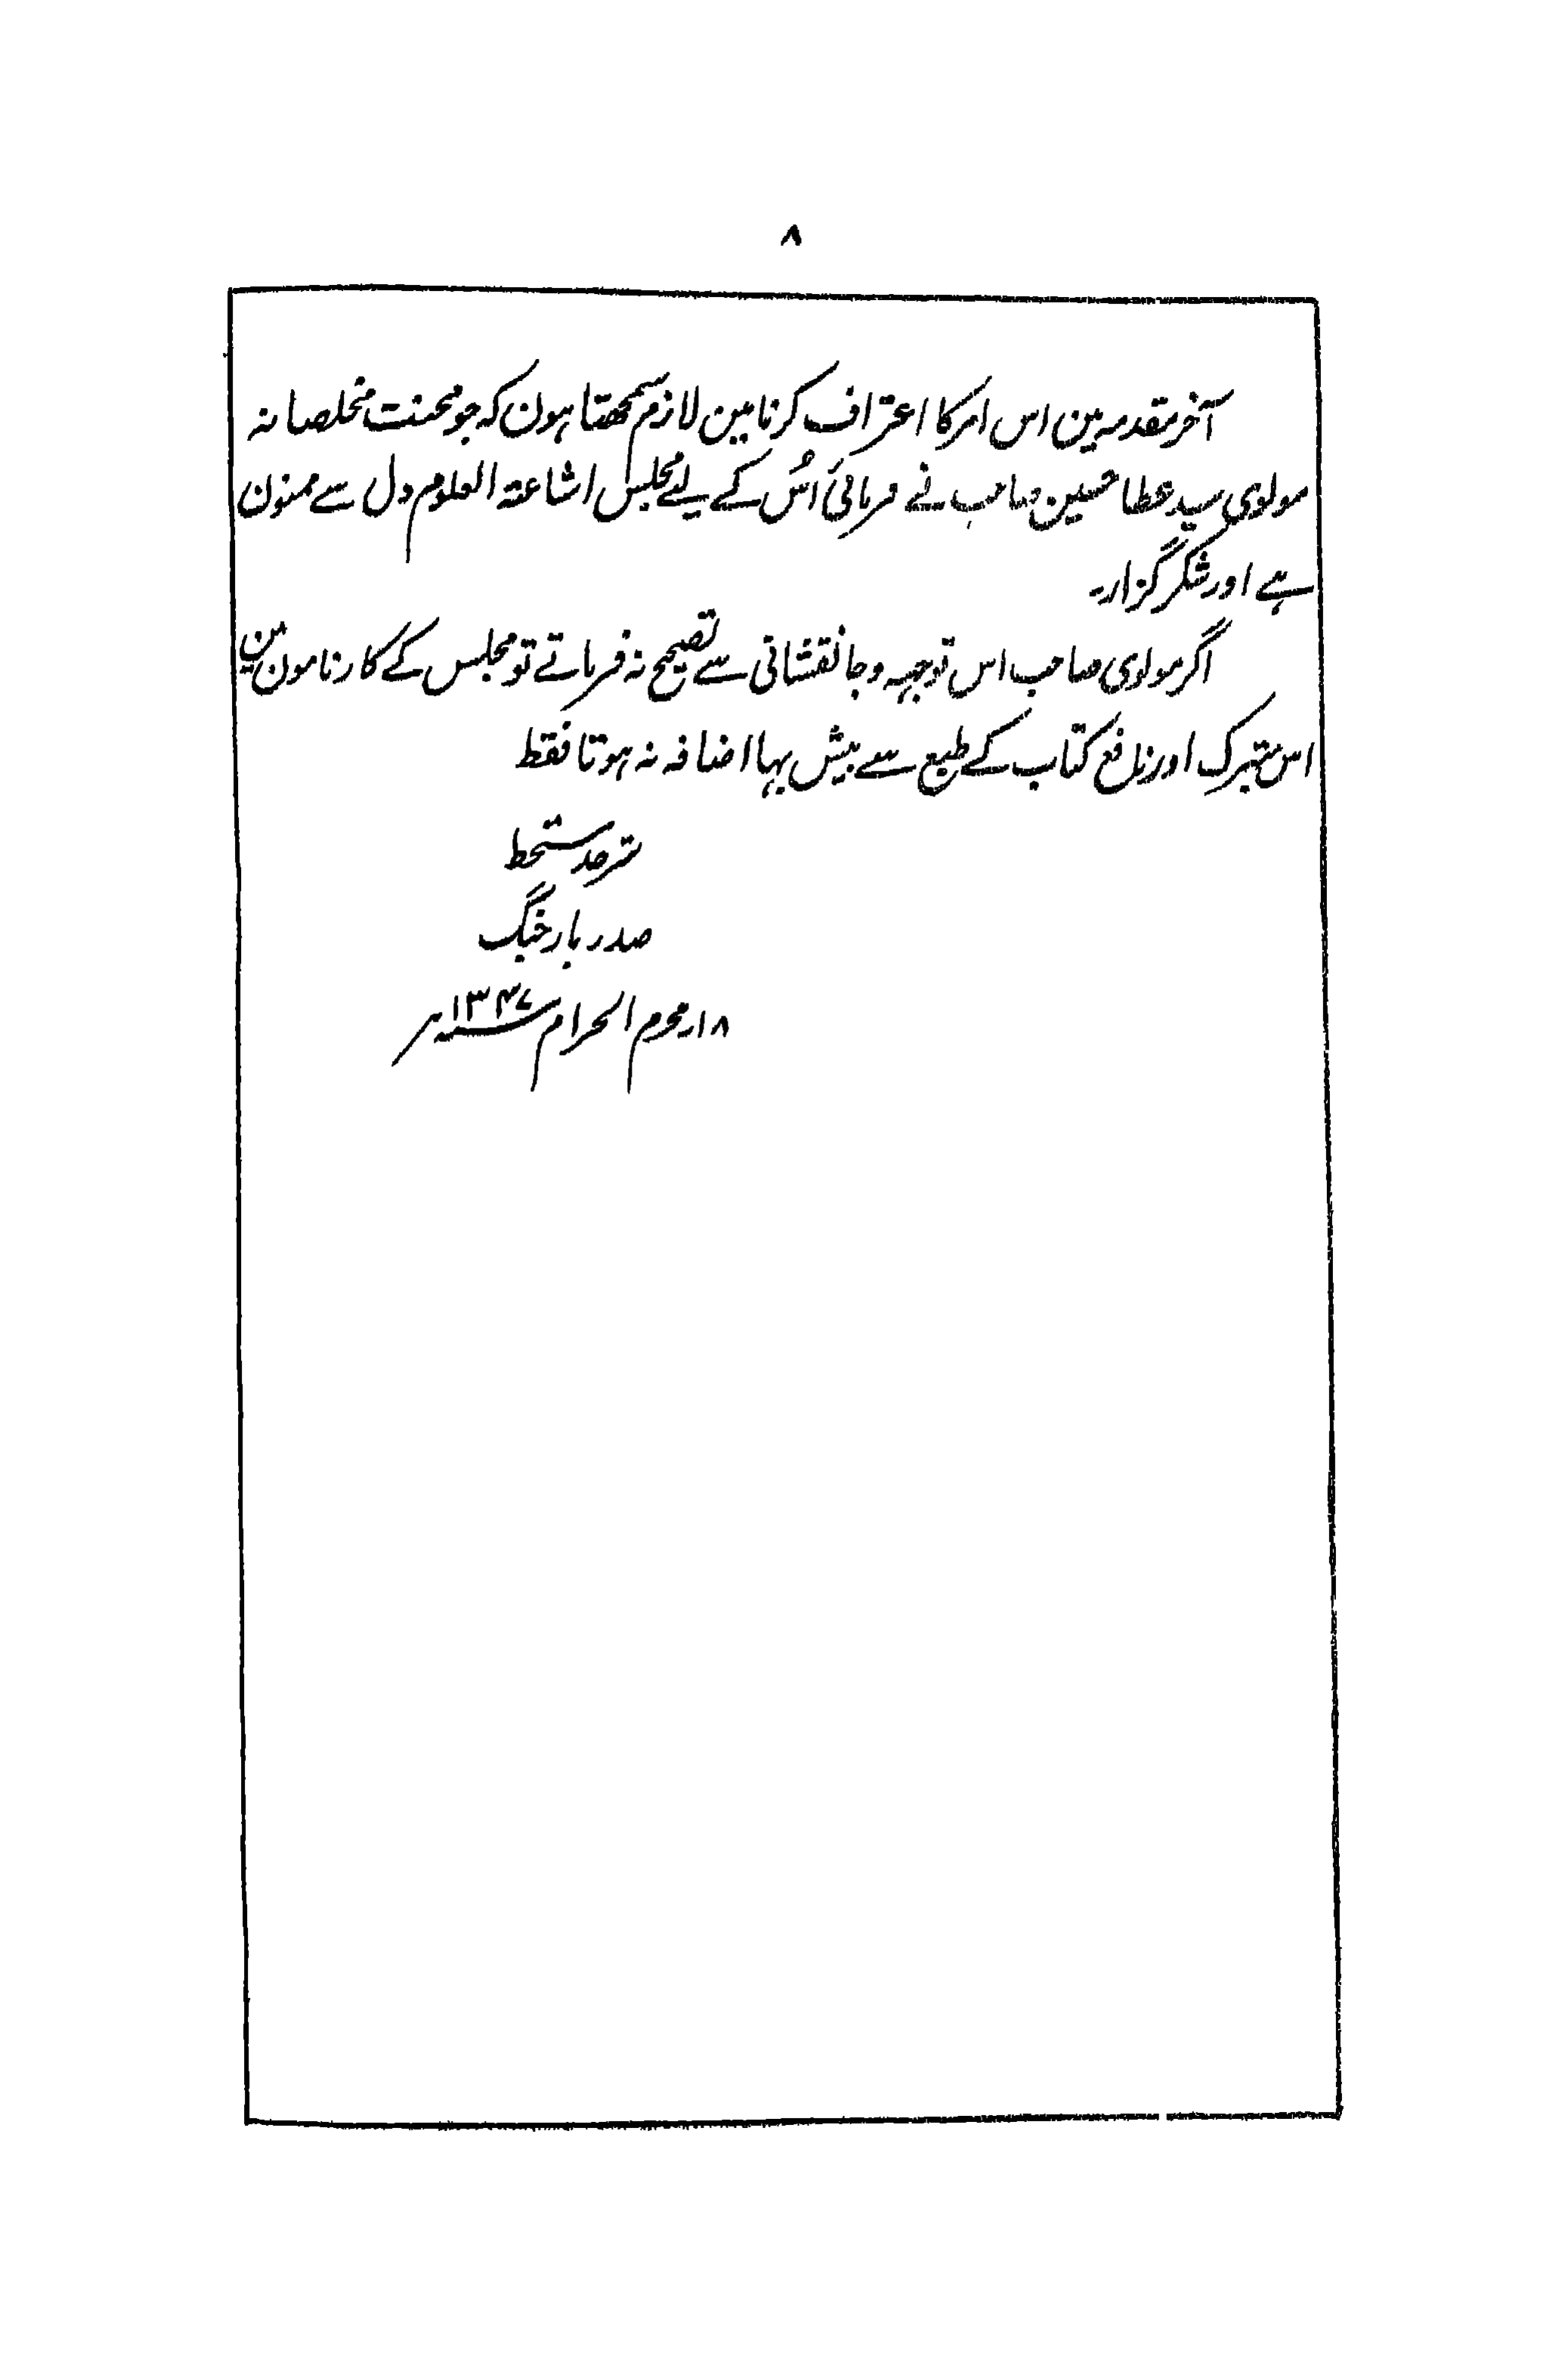 ۸
آخر مقدمہ مین اس امر کا اعتراف کرنا مین لازم سمجھتا ہون کہ جو محنت مخلصانہ
مولوی سید عطا حسین صاحب نے فرمائی اُس کے لیے مجلس اشاعۃ العلوم دل سے ممنون
ہے اور شکر گزار۔
اگر مولوی صاحب اس توجیہ و جانفشانی سے تصحیح نہ فرماتے تو مجلس کے کارنامون مین
اس متبرک اور نافع کتاب کے طبع سے بیش بہا اضافہ نہ ہوتا فقط
شرحدستخط
صدر یار جنگ
۱۸؍ محرم الحرام سنہ ۱۳۴۷ھ